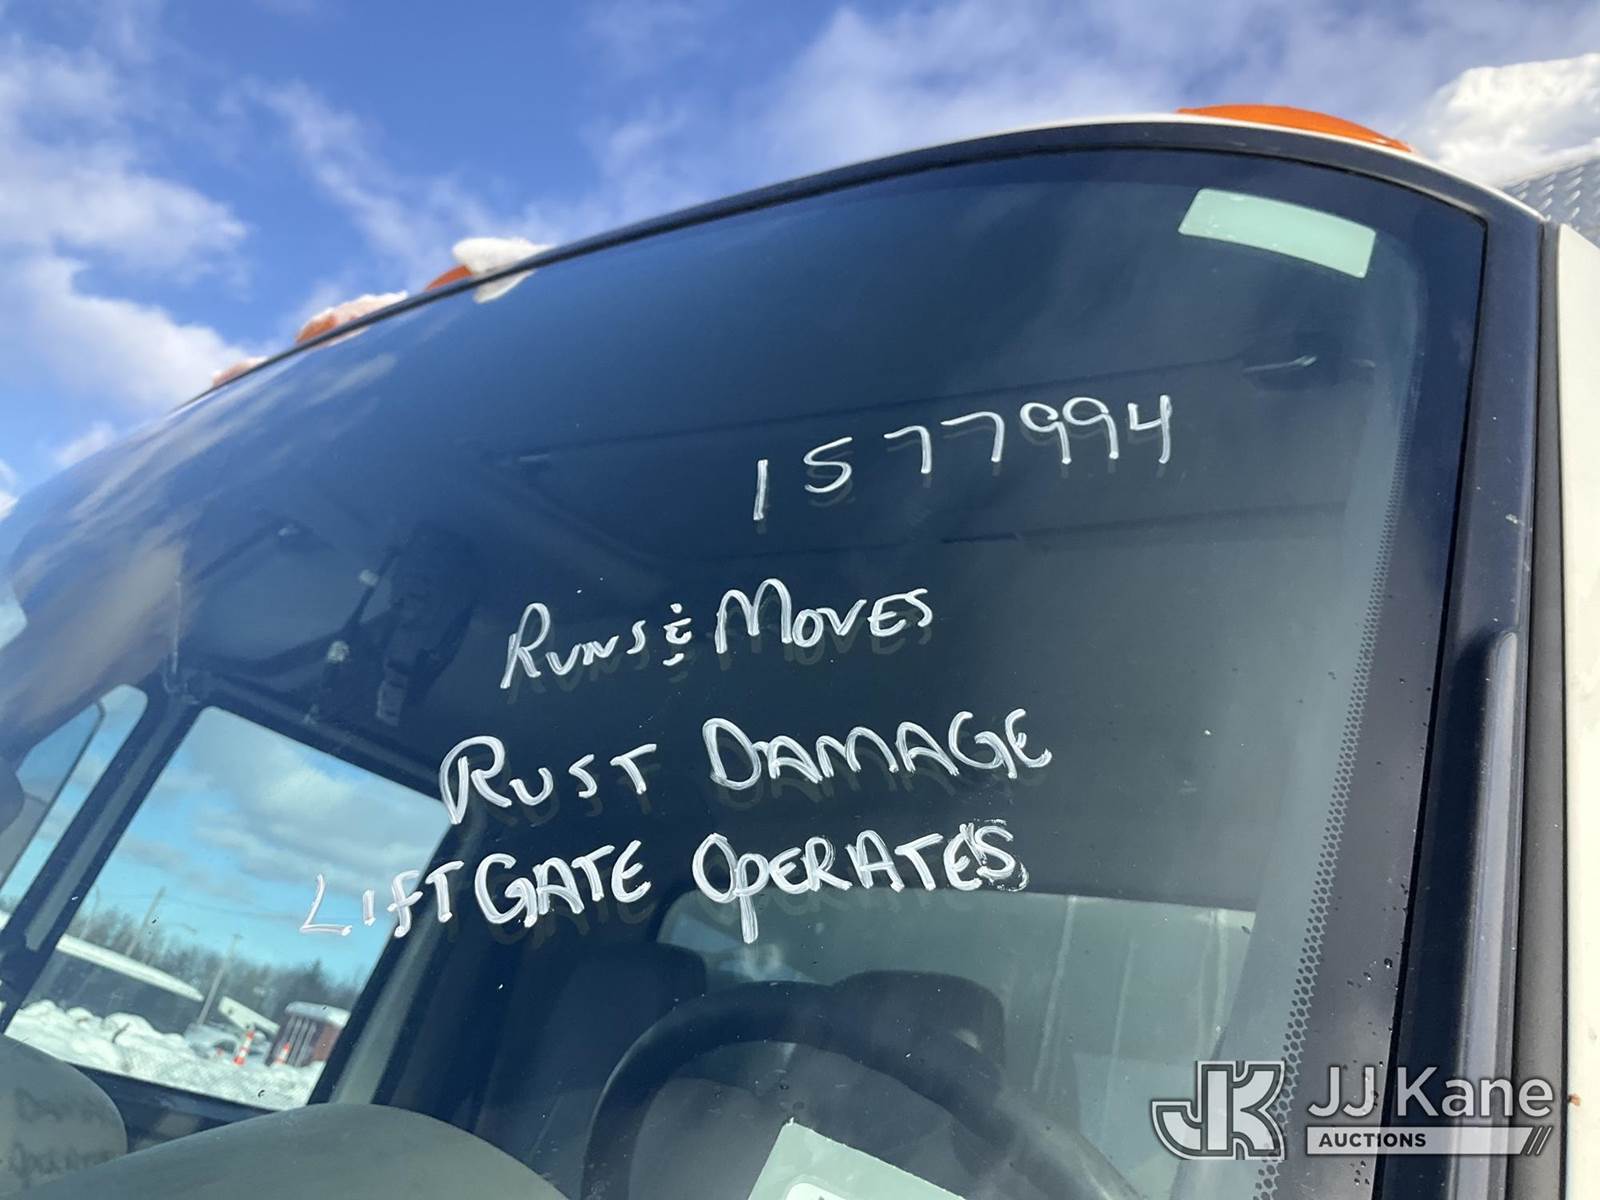 1577994
RUNS & MOVES
RUST DAMAGE
LIFTGATE OPERATES
JK JJ Kane
AUCTIONS